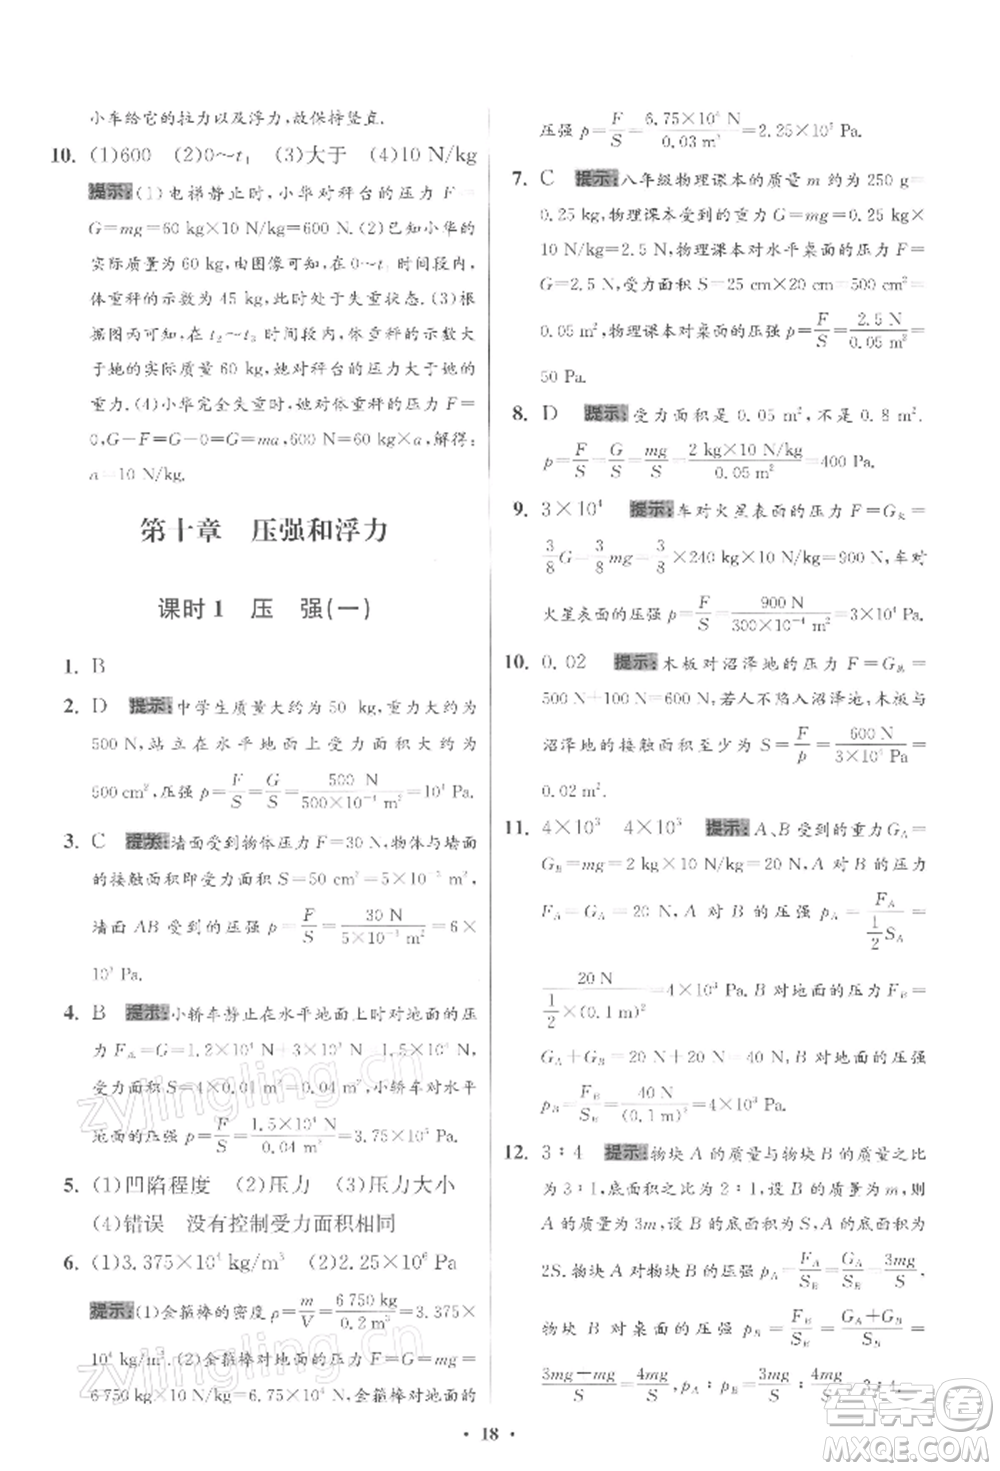 小车给它的拉力以及浮力,故保持竖直.
10. (1)600 (2)0～t₁ (3)大于 (4)10 N/kg
提示:(1)电梯静止时,小华对秤台的压力 F=
G=mg=60 kg×10 N/kg=600 N.(2)已知小华的
实际质量为 60 kg,由图像可知,在 0～t₁ 时间段内,
体重秤的示数为 45 kg,则此时处于失重状态.(3)根
据图丙可知,在 t₂～t₃ 时间段内,体重秤的示数大
于她的实际质量 60 kg,她对秤台的压力大于她的
重力.(4)小华完全失重时,她对体重秤的压力 F=
0,G-F=G-0=G=ma,600 N=60 kg×a,解得:
a=10 N/kg.
第十章 压强和浮力
课时1 压 强(一)
1. B
2. D 提示:中学生质量大约为 50 kg,重力大约为
500 N,站立在水平地面上受力面积大约为
500 cm²,压强 p=F/S=G/S=500 N/(500×10⁻⁴ m²)=10⁴ Pa.
3. C 提示:墙面受到物体压力 F=30 N,物体与墙面
的接触面积即受力面积 S=50 cm²=5×10⁻³ m²,
墙面 AB 受到的压强 p=F/S=30 N/(5×10⁻³ m²)=6×
10³ Pa.
4. B 提示:小轿车静止在水平地面上时对地面的压
力 F=G=1.2×10⁴ N+3×10³ N=1.5×10⁴ N,
受力面积 S=4×0.01 m²=0.04 m²,小轿车对水平
地面的压强 p=F/S=1.5×10⁴ N/0.04 m²=3.75×10⁵ Pa.
5. (1)凹陷程度 (2)压力 (3)压力大小
(4)错误 没有控制受力面积相同
6. (1)3.375×10⁴ kg/m³ (2)2.25×10⁶ Pa
提示:(1)金箍棒的密度 ρ=m/V=6 750 kg/0.2 m³=3.375×
10⁴ kg/m³.(2)金箍棒对地面的压力 F=G=mg=
6 750 kg×10 N/kg=6.75×10⁴ N,金箍棒对地面的
压强 p=F/S=6.75×10⁴ N/0.03 m²=2.25×10⁶ Pa.
7. C 提示:八年级物理课本的质量 m 约为 250 g=
0.25 kg,物理课本受到的重力 G=mg=0.25 kg×
10 N/kg=2.5 N,物理课本对水平桌面的压力 F=
G=2.5 N,受力面积 S=25 cm×20 cm=500 cm²=
0.05 m²,物理课本对桌面的压强 p=F/S=2.5 N/0.05 m²=
50 Pa.
8. D 提示:受力面积是 0.05 m²,不是 0.8 m².
p=F/S=G/S=mg/S=2 kg×10 N/kg/0.05 m²=400 Pa.
9. 3×10⁴ 提示:车对火星表面的压力 F=G火=
3/8 G=3/8 mg=3/8×240 kg×10 N/kg=900 N,车对
火星表面的压强 p=F/S=900 N/(300×10⁻⁴ m²)=3×10⁴ Pa.
10. 0.02 提示:木板对沼泽地的压力 F=G总=
500 N+100 N=600 N,若人不陷入沼泽地,木板与
沼泽地的接触面积至少为 S=F/p=600 N/(3×10⁴ Pa)=
0.02 m².
11. 4×10³ 4×10³ 提示:A、B 受到的重力 G_A=
G_B=mg=2 kg×10 N/kg=20 N,A 对 B 的压力
F_A=G_A=20 N,A 对 B 的压强 p_A=F_A/(1/2 S_A)=
20 N/(1/2×(0.1 m)²)=4×10³ Pa,B 对地面的压力 F_B=
G_A+G_B=20 N+20 N=40 N,B 对地面的压强
p_B=F_B/S_B=40 N/(0.1 m)²=4×10³ Pa.
12. 3∶4 提示:物块 A 的质量与物块 B 的质量之比
为 3∶1,底面积之比为 2∶1,设 B 的质量为 m,则 A
的质量为 3m,设 B 的底面积为 S,则 A 的底面积为
2S.物块 A 对物块 B 的压强 p_A=F_A/S_B=G_A/S_B=3mg/S,
物块 B 对地面的压强 p_B=F_B/S_B=(G_A+G_B)/S_B=
(3mg+mg)/S=4mg/S,p_A∶p_B=3mg/S∶4mg/S=3∶4.
• 18 •
zyjingling.cn
zyjingling.cn
答案圈
MXQE.COM